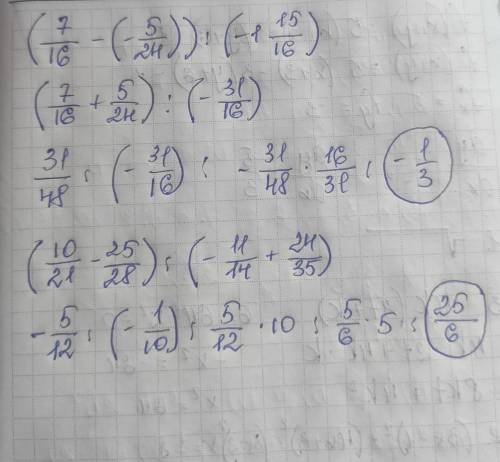 (7/16 - (-5/24)) : (-1 15/16)
(7/16 + 5/24) : (-31/16)
31/48 : (-31/16) : -31/48 · 16/31 : -1/3
(10/21 - 25/28) : (-11/14 + 24/35)
-5/12 : (-1/10) : 5/12 · 10 : 5/6 · 5 : 25/6